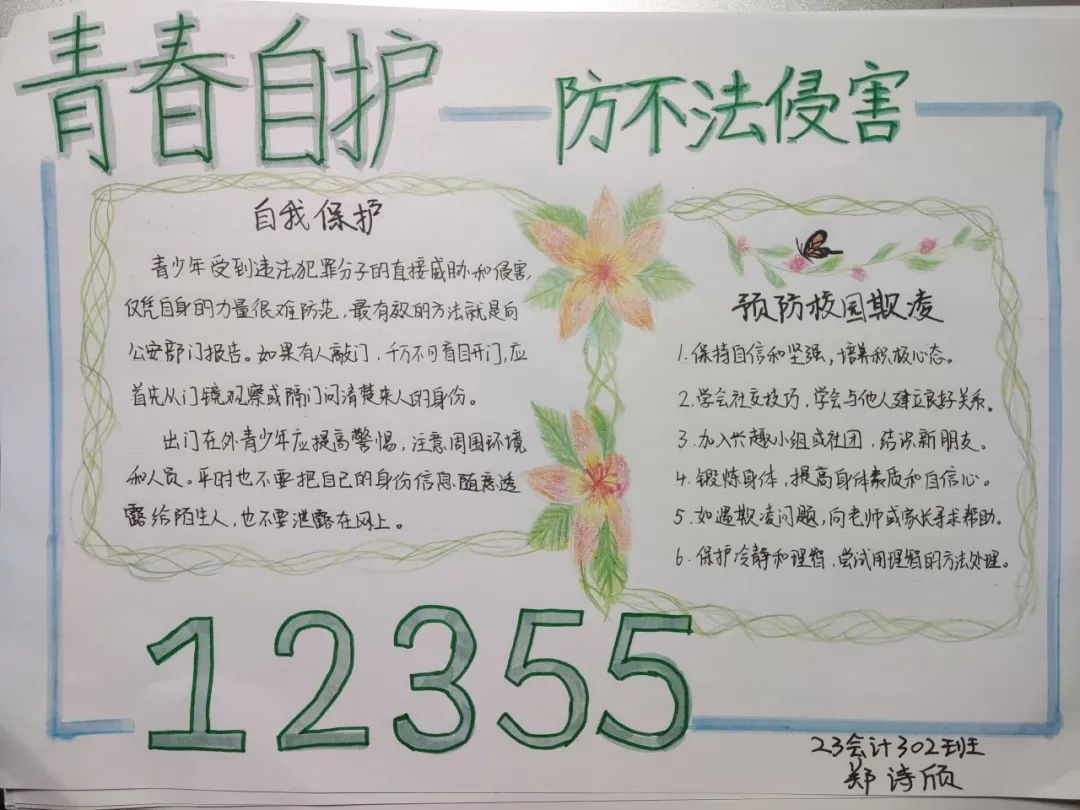 青春自护
防不法侵害
自我保护
青少年受到违法犯罪分子的直接威胁和侵害,
仅凭自身的力量很难防范,最有效的方法就是向
公安部门报告。如果有人敲门,千万不可盲目开门,应
首先从门镜观察或隔门问清楚来人的身份。
出门在外青少年应提高警惕,注意周围环境
和人员。平时也不要把自己的身份信息随意透
露给陌生人,也不要泄露在网上。
预防校园欺凌
1.保持自信和坚强,培养积极心态。
2.学会社交技巧,学会与他人建立良好关系。
3.加入兴趣小组或社团,结识新朋友。
4.锻炼身体,提高身体素质和自信心。
5.如遇欺凌问题,向老师或家长寻求帮助。
6.保护冷静和理智,尝试用理智的方法处理。
12355
23会计302班
郑诗颀